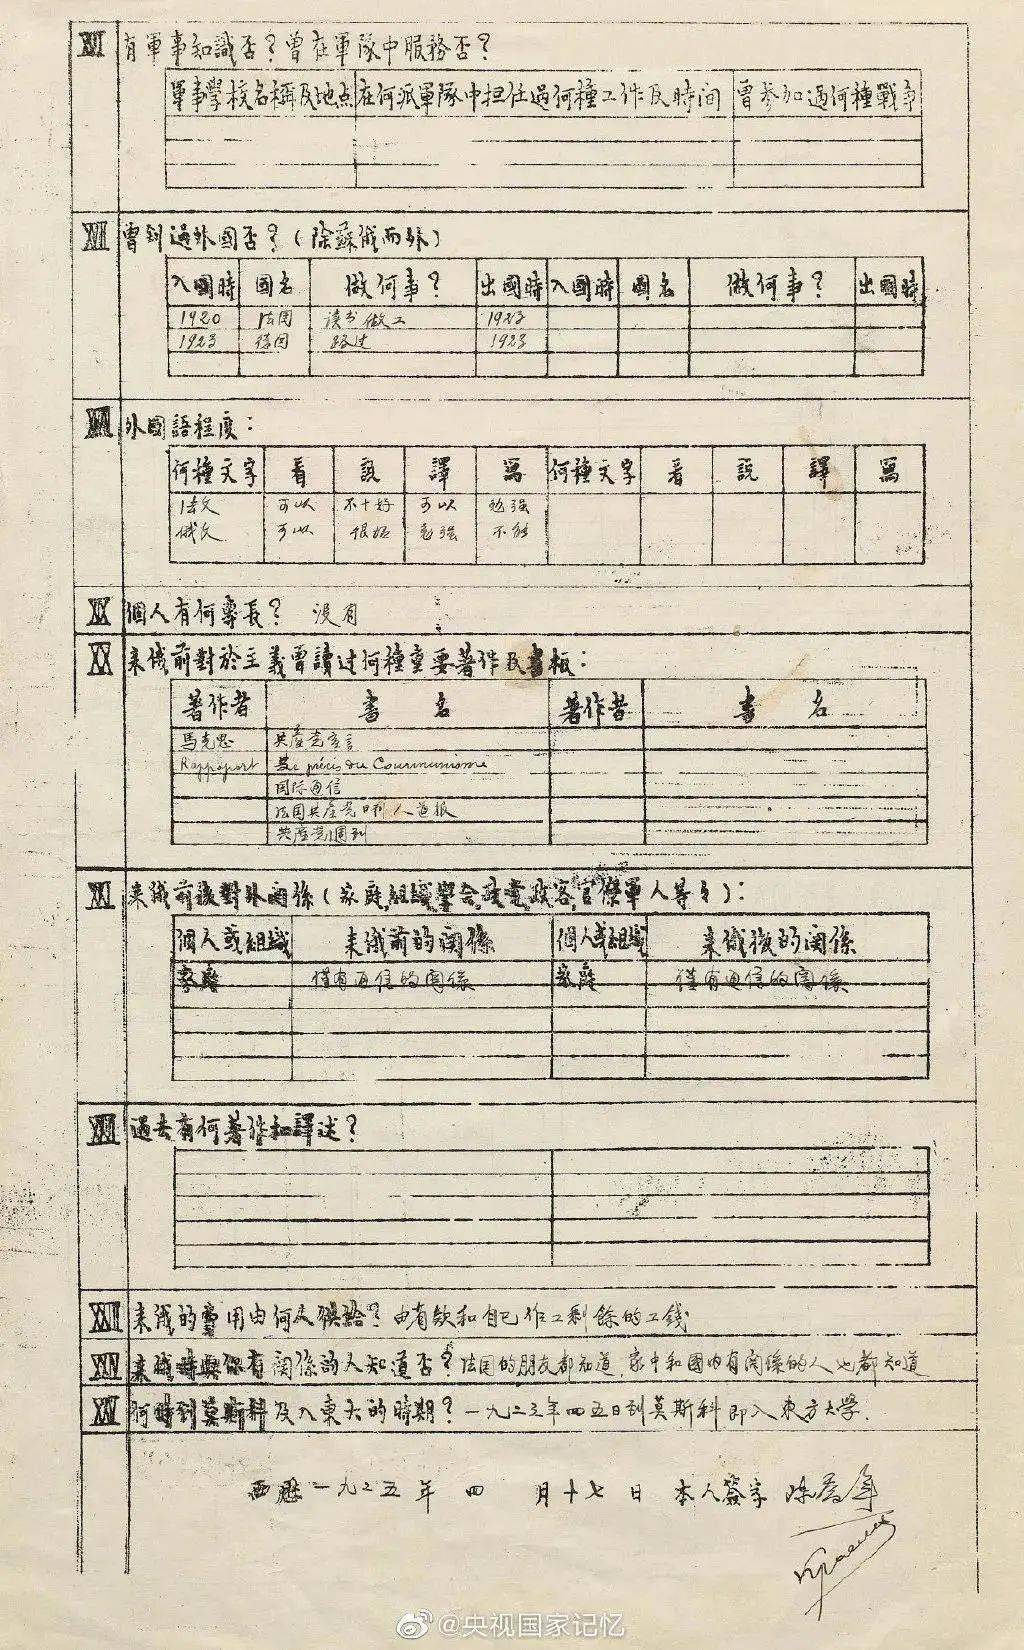 XVI 有軍事知識否?曾在軍隊中服務否?
軍事學校名稱及地点 在何派軍隊中担任過何種工作及時間 曾参加過何種戰爭
XVII 曾到過外國否?(除蘇俄而外)
入國時 國名 做何事? 出國時 入國時 國名 做何事? 出國時
1920 法国 读书做工 1923
1923 德国 路过 1923
XVIII 外國語程度:
何種文字 看 說 譯 寫 何種文字 看 説 譯 寫
法文 可以 不十好 可以 勉强
俄文 可以 很好 勉强 不能
XIX 個人有何專長? 没有
XX 来俄前對於主義曾讀过何種重要著作及書板:
著作者 書名 著作者 書名
馬克思 共產党宣言
Rappoport précis du Communisme
国际通信
法国共產党 人道报
共產党週刊
XXI 来俄前後對外関係(家庭,組織,學会,政黨,政客,官僚軍人等等):
個人或組織 来俄前的関係 個人或組織 来俄後的関係
家庭 僅有通信的関係 家庭 僅有通信的関係
XXII 過去有何著作和譯述?
XXIII 来俄的費用由何人供給? 由 和自己作工剩餘的工錢
XXIV 来俄時與你有関係的人知道否? 法国的朋友都知道,家中和國内有関係的人也都知道
XXV 何時到莫斯科及入東大的時期? 一九二三年四 五日到莫斯科即入東方大學.
西歷一九二五年 四 月十七日 本人簽字 陈喬年
@央视国家记忆